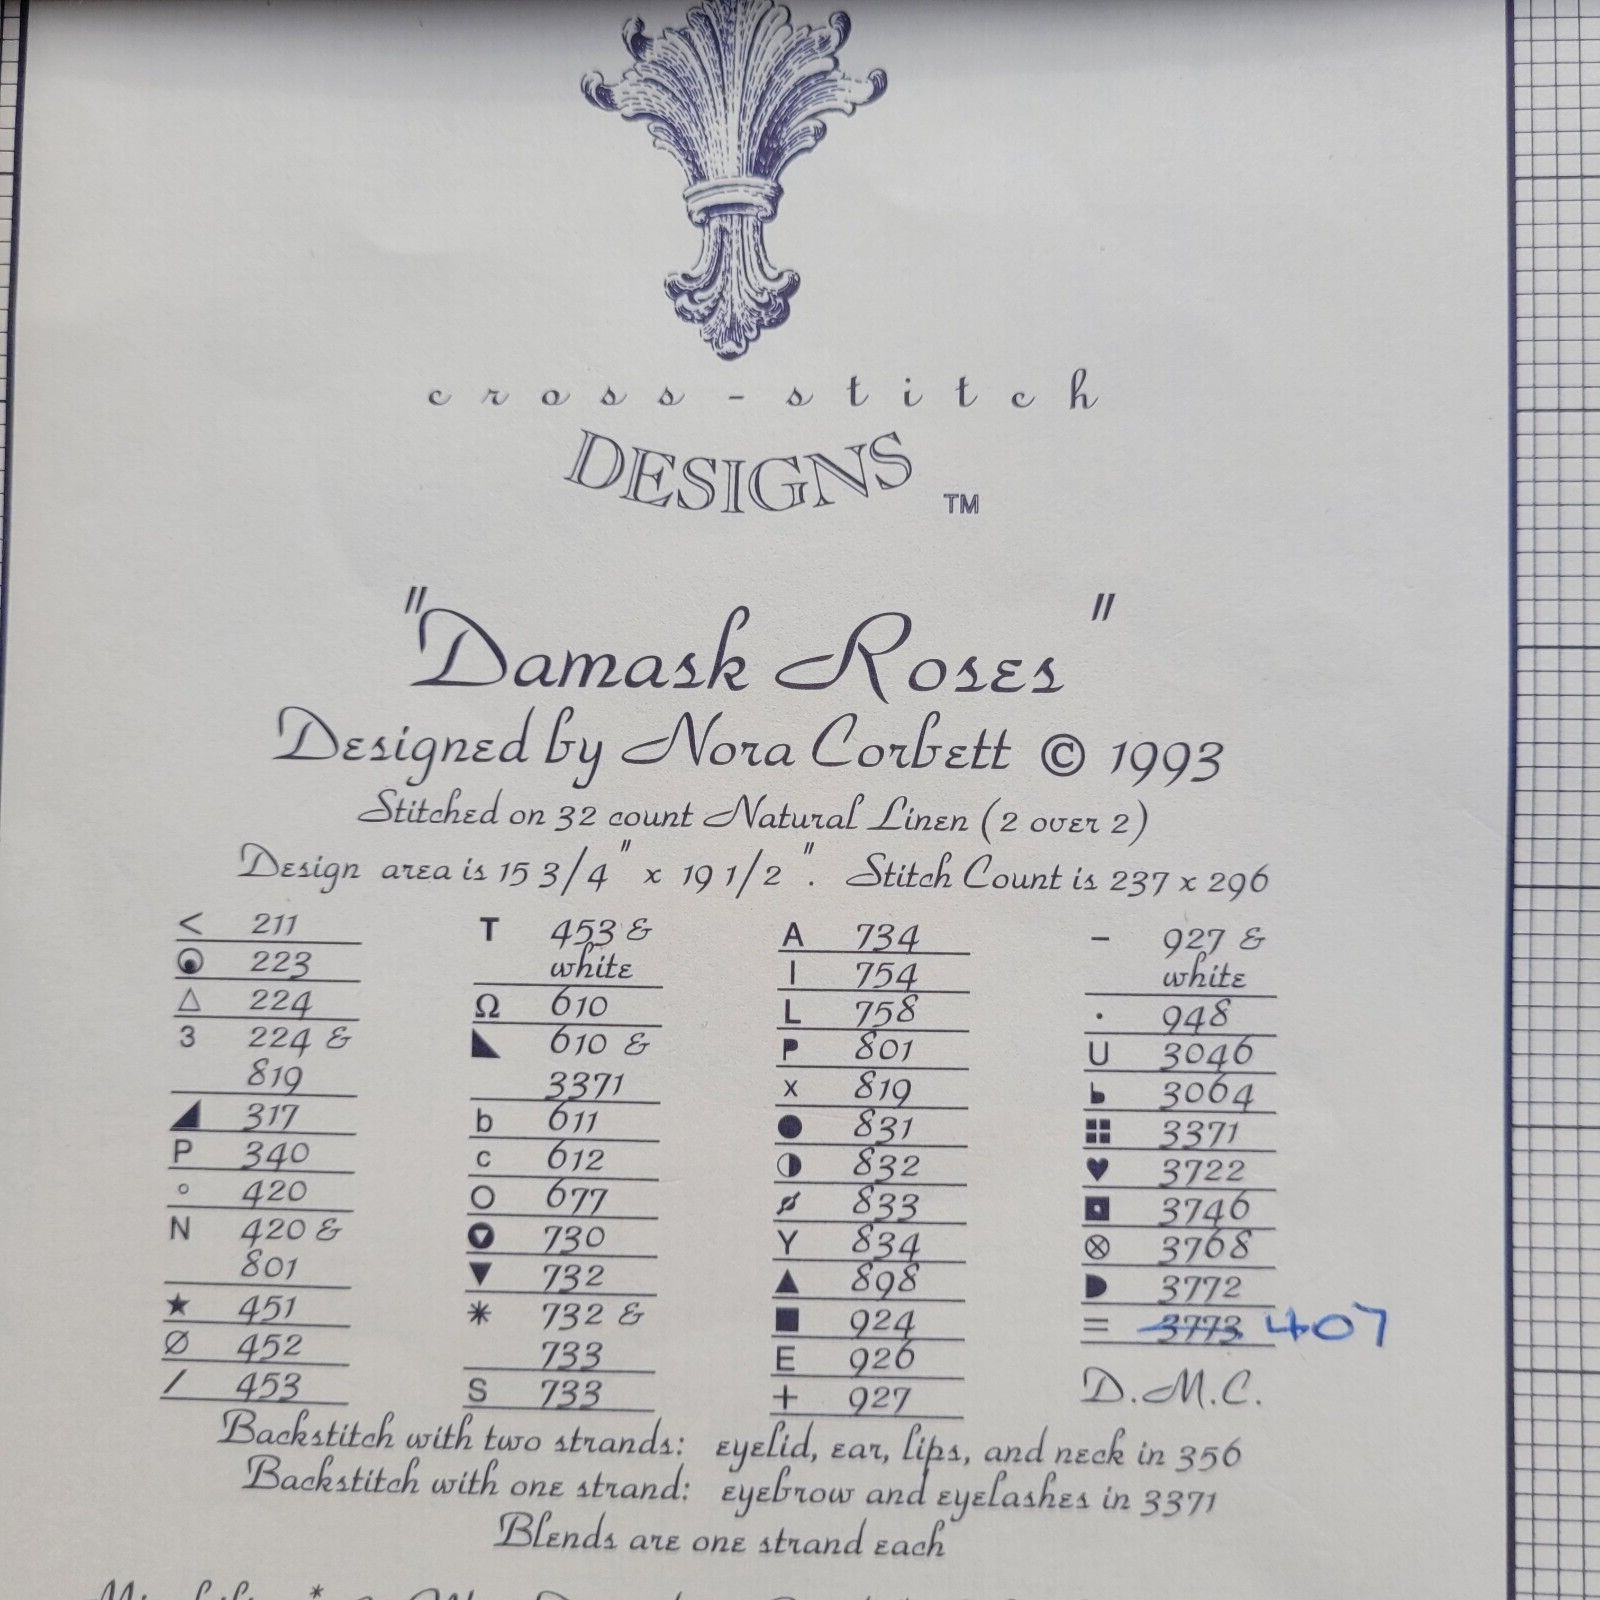 cross-stitch
DESIGNS
TM
"Damask Roses"
Designed by Nora Corbett © 1993
Stitched on 32 count Natural Linen (2 over 2)
Design area is 15 3/4" x 19 1/2". Stitch Count is 237 x 296
< 211
223
△ 224
3 224 &
819
◢ 317
P 340
° 420
N 420 &
801
★ 451
∅ 452
/ 453
T 453 &
white
Ω 610
◣ 610 &
3371
b 611
c 612
O 677
730
▼ 732
* 732 &
733
S 733
A 734
| 754
L 758
P 801
x 819
● 831
◑ 832
ø 833
Y 834
▲ 898
■ 924
E 926
+ 927
- 927 &
white
· 948
U 3046
3064
3371
♥ 3722
3746
⊗ 3768
◗ 3772
= 3773 407
D.M.C.
Backstitch with two strands: eyelid, ear, lips, and neck in 356
Backstitch with one strand: eyebrow and eyelashes in 3371
Blends are one strand each